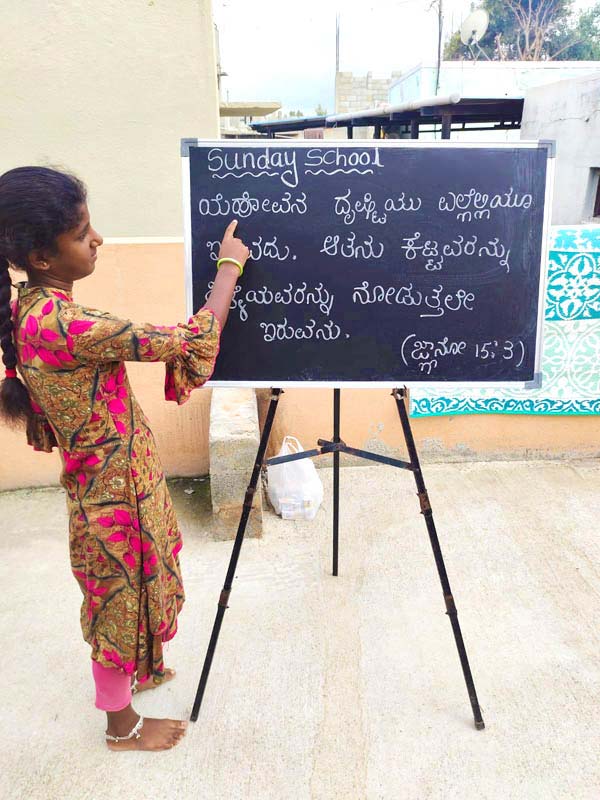 Sunday School
ಯೆಹೋವನ ದೃಷ್ಟಿಯು ಎಲ್ಲೆಲ್ಲಿಯೂ
ಆತನು ಕೆಟ್ಟವರನ್ನು
ಒಳ್ಳೆಯವರನ್ನು ನೋಡುತ್ತಲೇ
ಇರುವನು.
(ಜ್ಞಾನೋ 15:3)